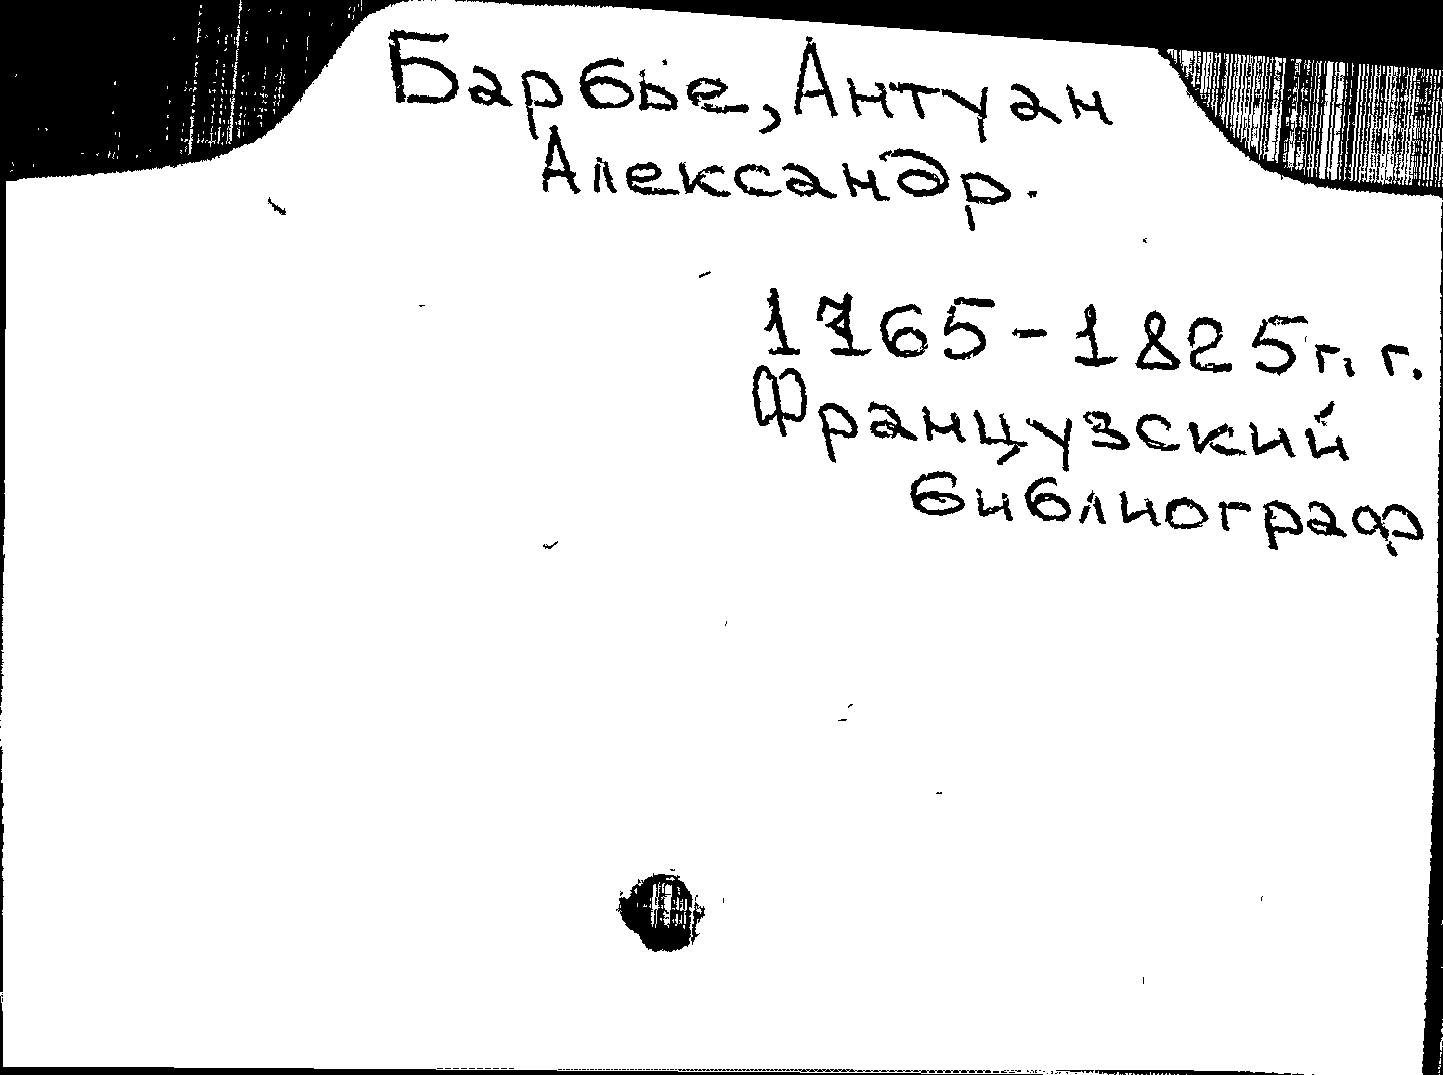 Барбье, Антуан
Александр.
1765-1825г. г.
Французский
библиограф